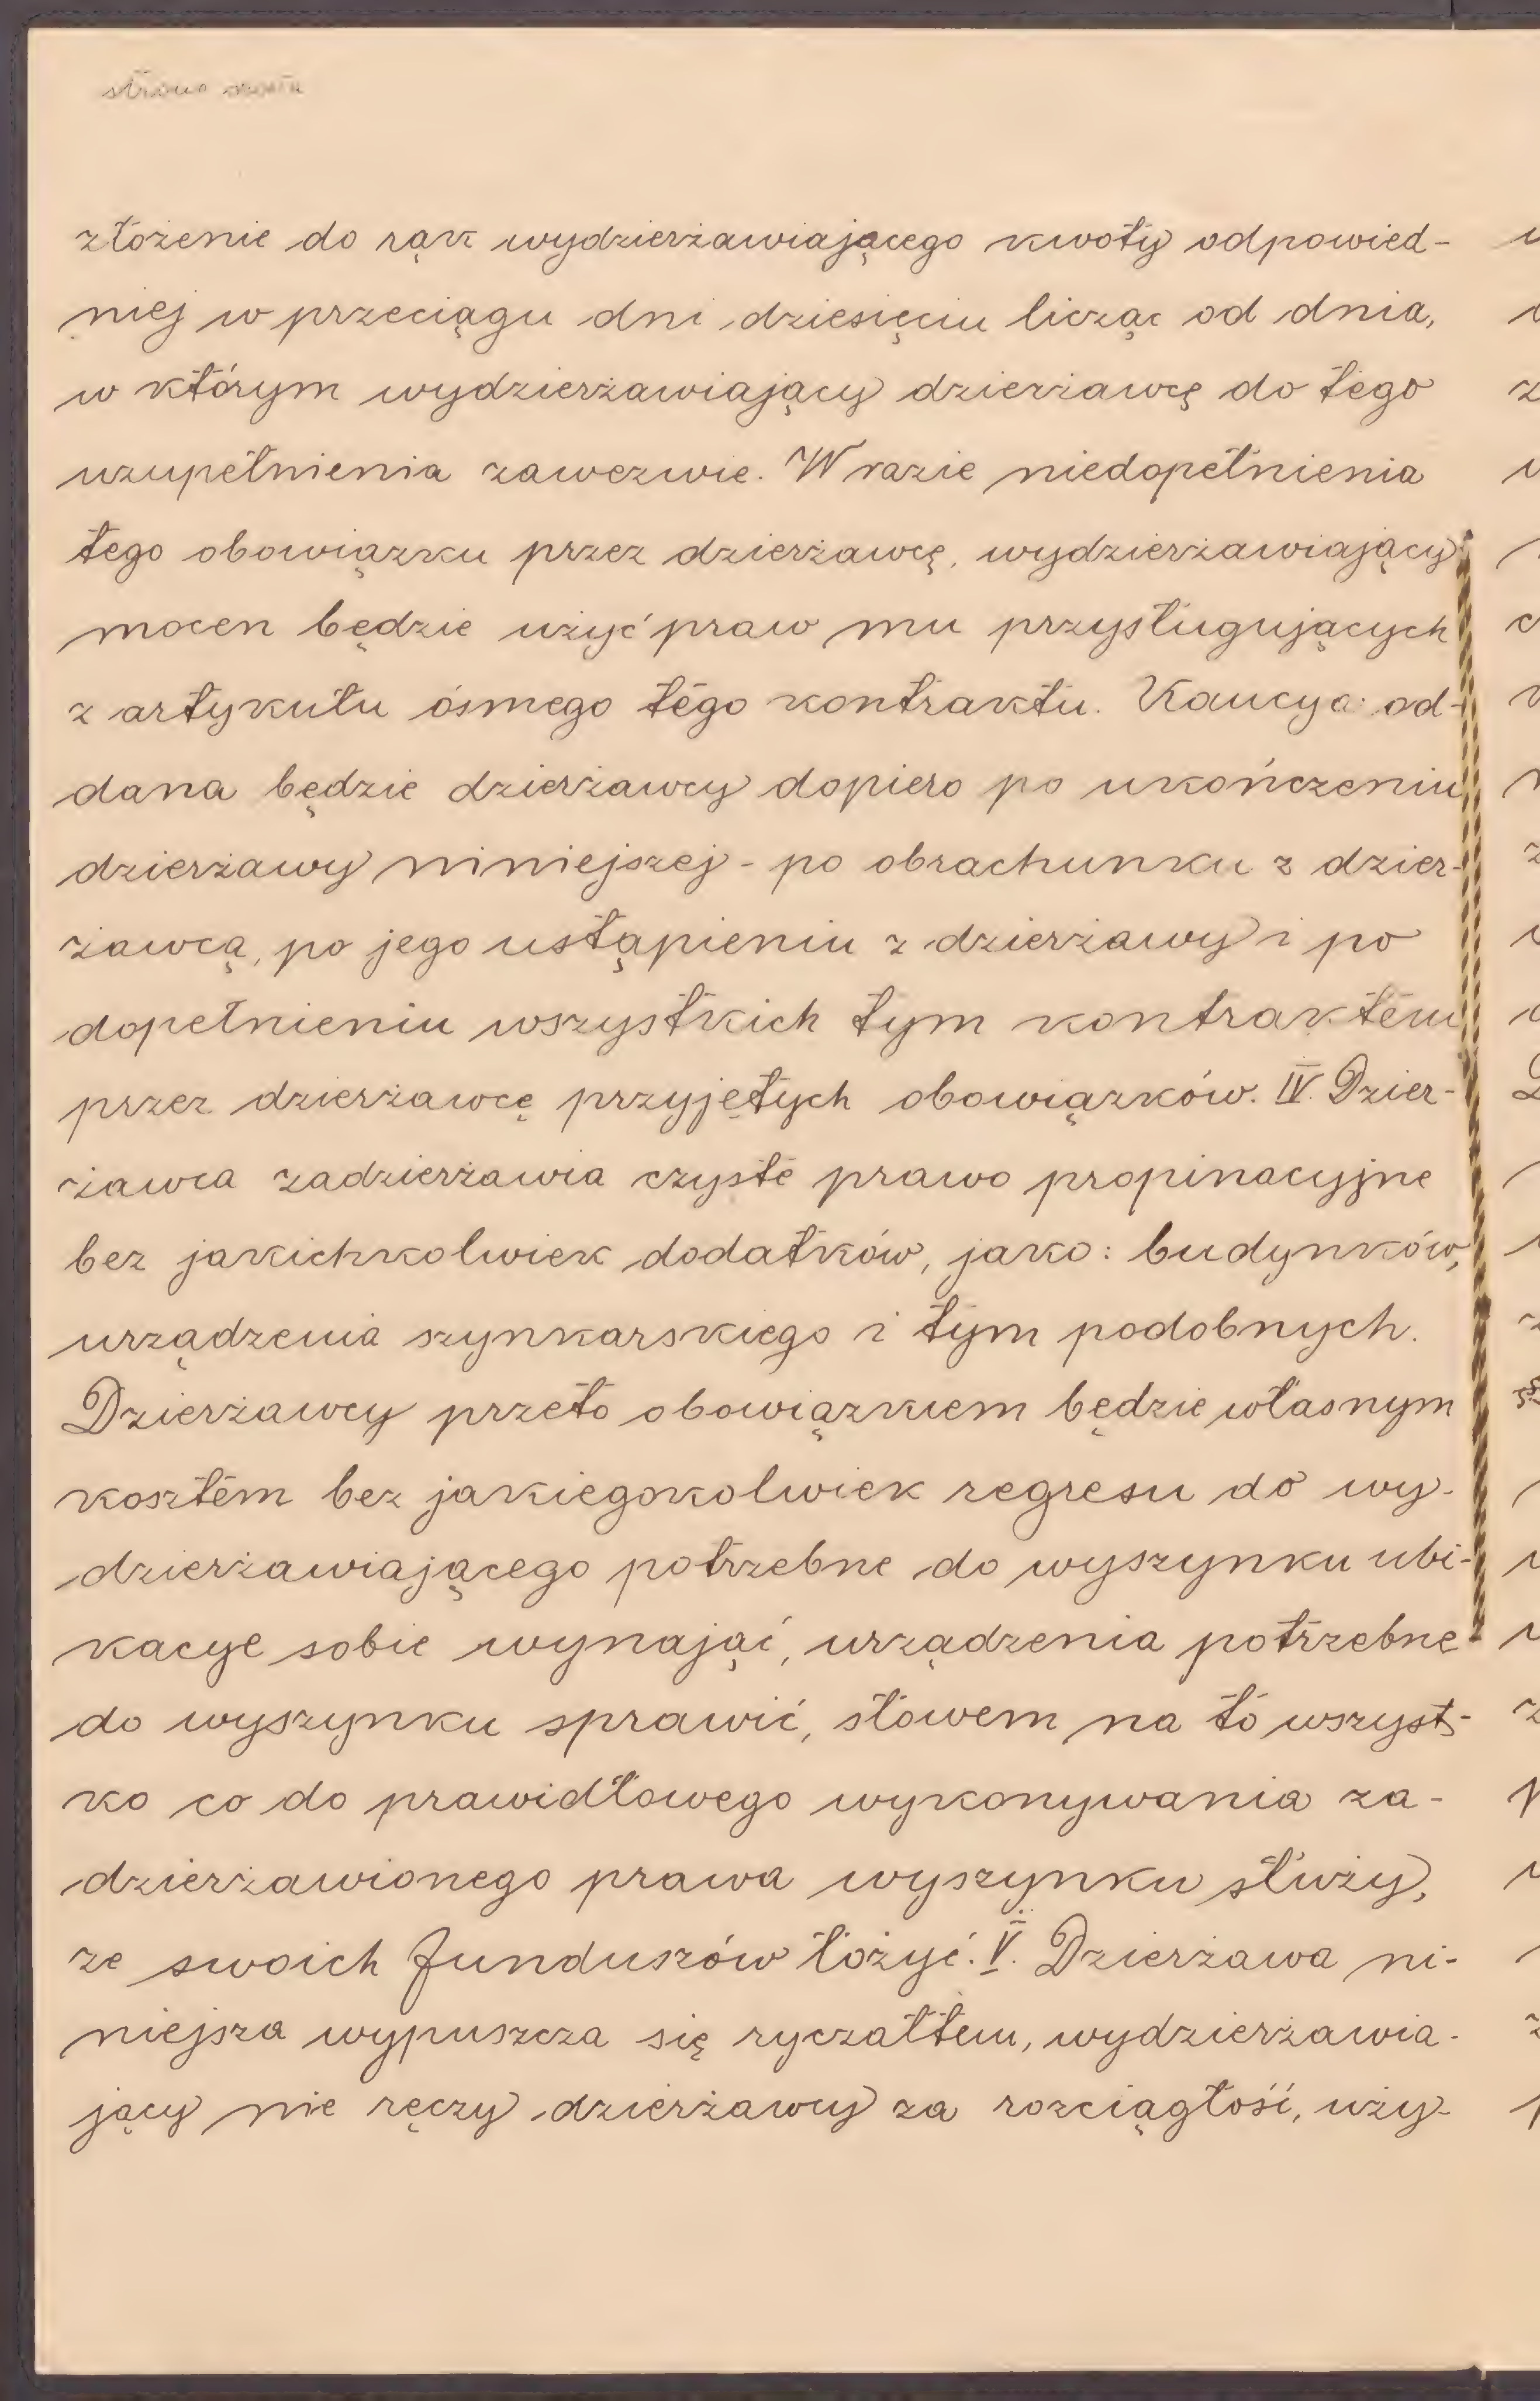 strona szósta
złożenie do rąk wydzierżawiającego kwoty odpowied-
niej w przeciągu dni dziesięciu licząc od dnia,
w którym wydzierżawiający dzierżawcę do tego
uzupełnienia zawezwie. W razie niedopełnienia
tego obowiązku przez dzierżawcę, wydzierżawiający
mocen będzie użyć praw mu przysługujących
z artykułu ósmego tego kontraktu. Kaucya od-
dana będzie dzierżawcy dopiero po ukończeniu
dzierżawy niniejszej - po obrachunku z dzier-
żawcą, po jego ustąpieniu z dzierżawy i po
dopełnieniu wszystkich tym kontraktem
przez dzierżawcę przyjętych obowiązków. IV. Dzier-
żawca zadzierżawia czyste prawo propinacyjne
bez jakichkolwiek dodatków, jako: budynków,
urządzenia szynkarskiego i tym podobnych.
Dzierżawcy przeto obowiązkiem będzie własnym
kosztem bez jakiegokolwiek regresu do wy-
dzierżawiającego potrzebne do wyszynku ubi-
kacye sobie wynająć, urządzenia potrzebne
do wyszynku sprawić, słowem na to wszyst-
ko co do prawidłowego wykonywania za-
dzierżawionego prawa wyszynku służy,
ze swoich funduszów łożyć. V. Dzierżawa ni-
niejsza wypuszcza się ryczałtem, wydzierżawia-
jący nie ręczy dzierżawcy za rozciągłość, uży-